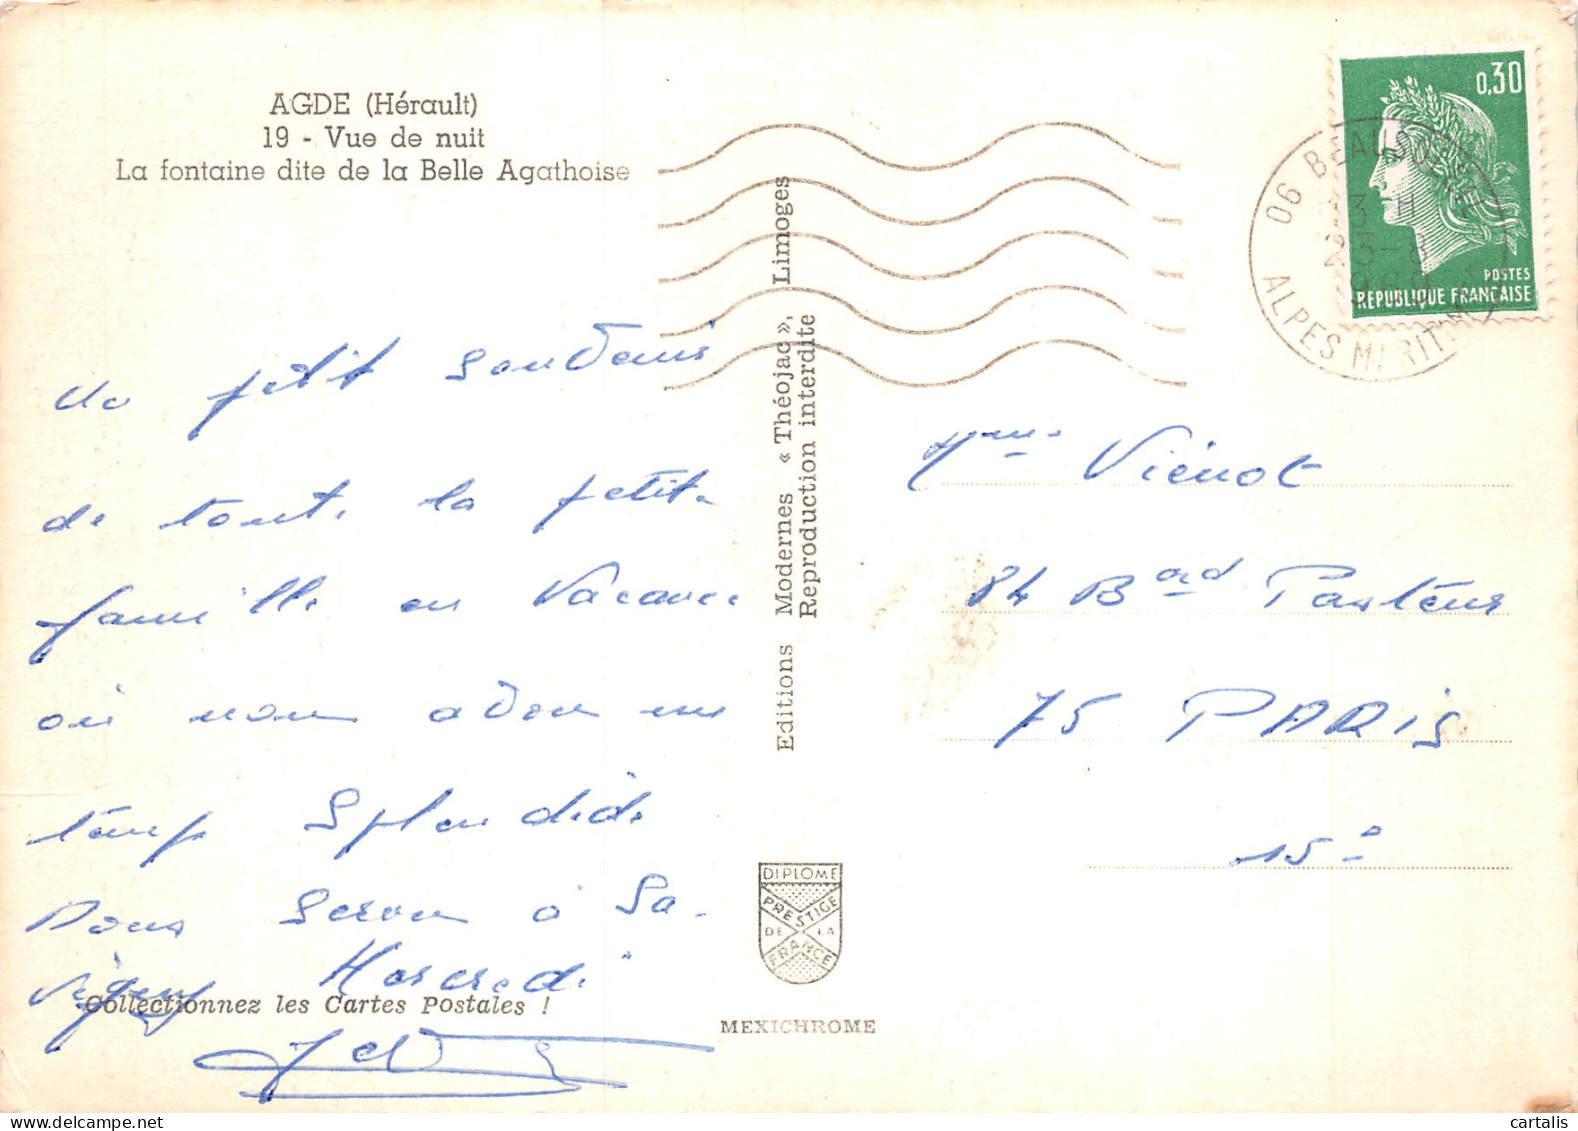 AGDE (Hérault)
19 - Vue de nuit
La fontaine dite de la Belle Agathoise
Un petit souvenir
de toute la petite
famille en vacance
où nous avons un
temps splendide
Nous serons à Sa-
Mercredi
Collectionnez les Cartes Postales !
Editions Modernes « Théojac », Limoges
Reproduction interdite
DIPLOME
PRESTIGE
DE LA
FRANCE
MEXICHROME
0,30
POSTES
REPUBLIQUE FRANÇAISE
06 BEAUSOLEIL
13 H
23-8
ALPES MARITIMES
Mme Viénot
84 Bard Pasteur
75 PARIS
15e
cartalis